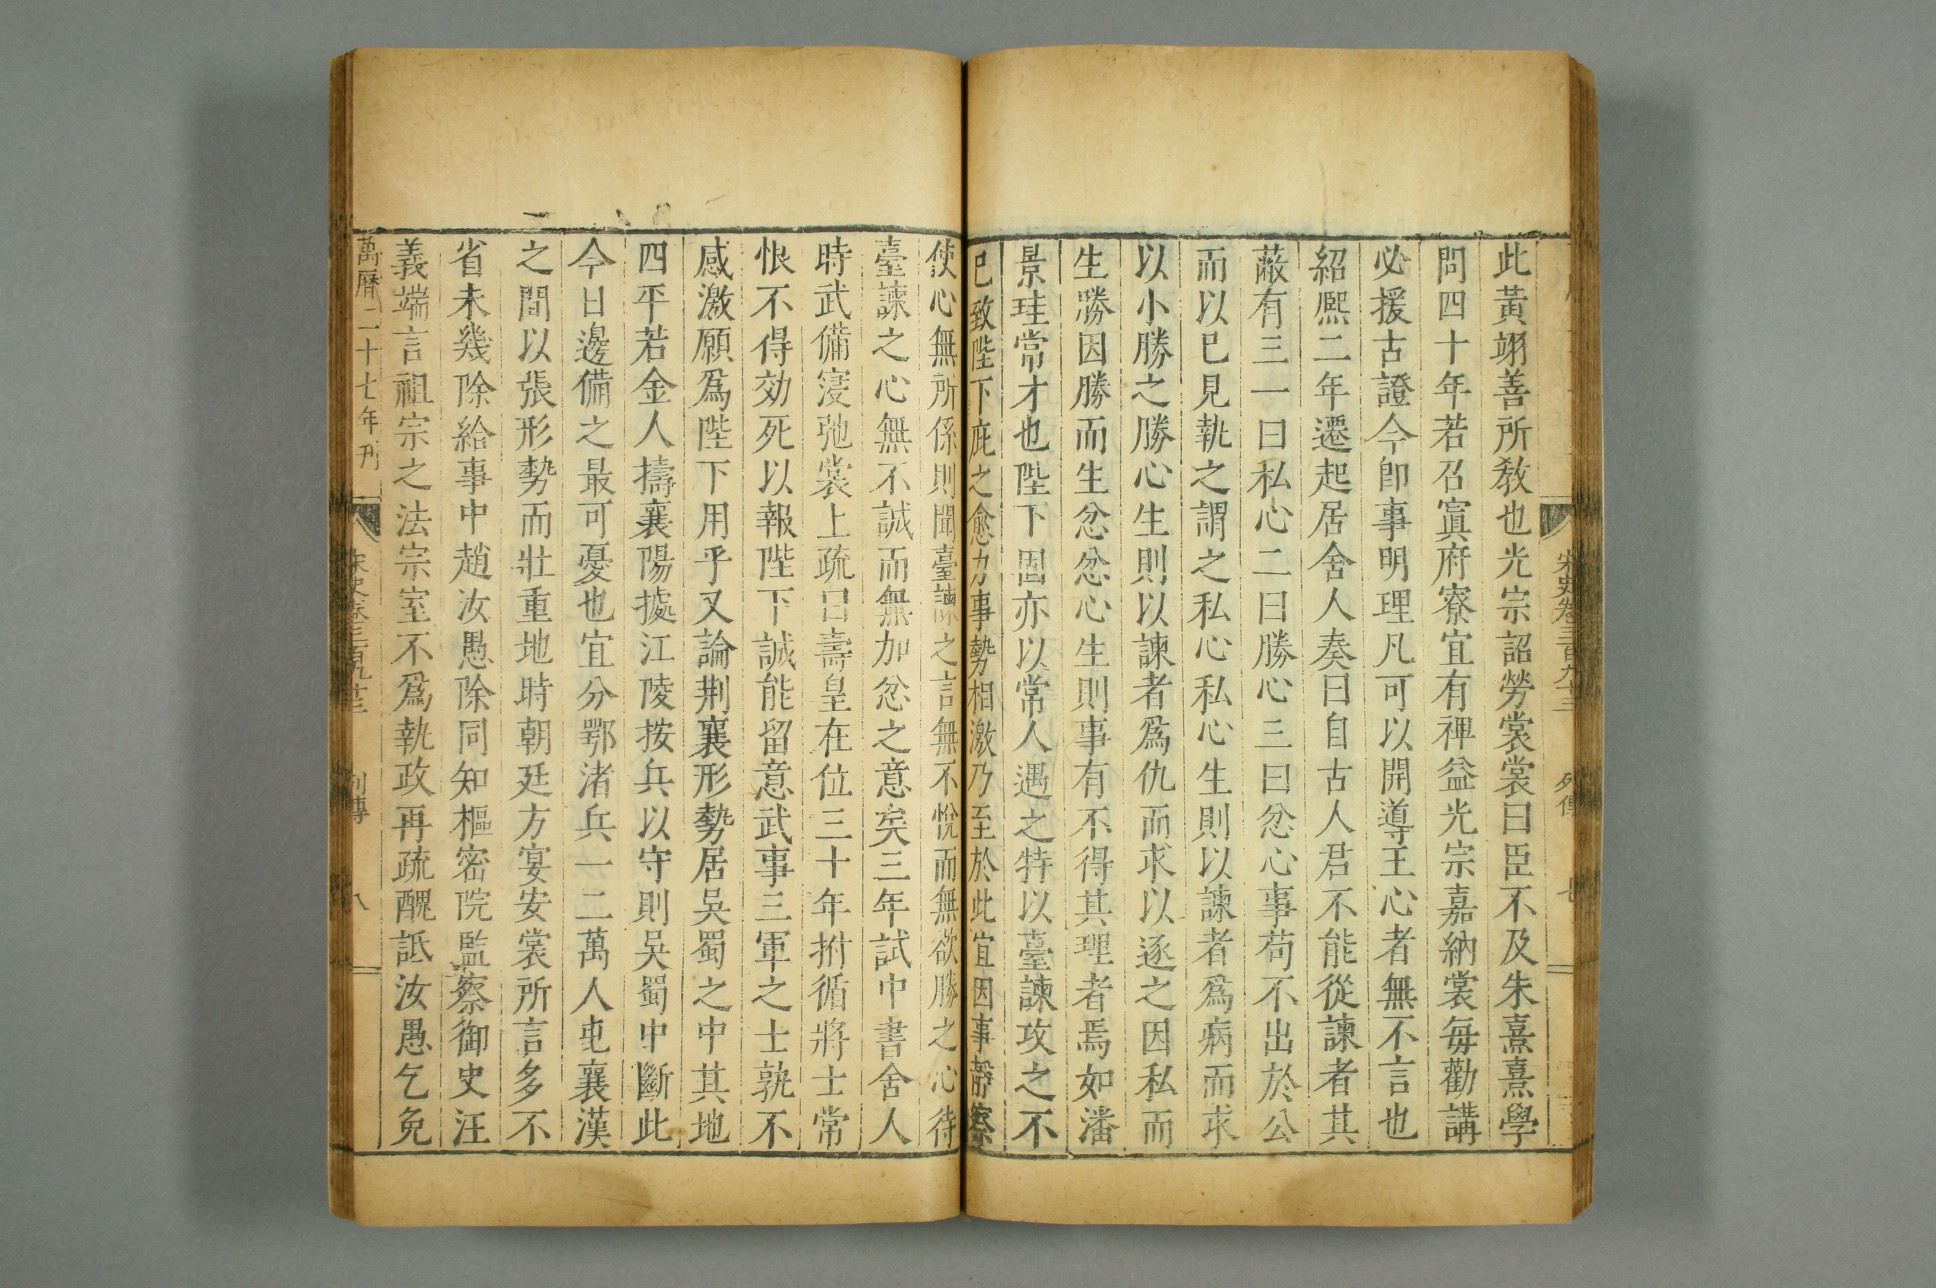 宋史卷三百九十三 列傳 七
此黃翊善所敎也光宗詔勞裳裳曰臣不及朱熹熹學
問四十年若召寘府寮宜有裨益光宗嘉納裳每勸講
必援古證今卽事明理凡可以開導王心者無不言也
紹熙二年遷起居舍人奏曰自古人君不能從諫者其
蔽有三一曰私心二曰勝心三曰忿心事苟不出於公
而以已見執之謂之私心私心生則以諫者爲病而求
以小勝之勝心生則以諫者爲仇而求以逐之因私而
生勝因勝而生忿忿心生則事有不得其理者焉如潘
景珪常才也陛下固亦以常人遇之特以臺諫攻之不
已致陛下庇之愈力事勢相激乃至於此宜因事靜察
使心無所係則聞臺諫之言無不悅而無欲勝之心待
臺諫之心無不誠而無加忿之意矣三年試中書舍人
時武備寖弛裳上疏曰壽皇在位三十年拊循將士常
恨不得効死以報陛下誠能留意武事三軍之士孰不
感激願爲陛下用乎又論荆襄形勢居吳蜀之中其地
四平若金人擣襄陽據江陵按兵以守則吳蜀中斷此
今日邊備之最可憂也宜分鄂渚兵一二萬人屯襄漢
之間以張形勢而壯重地時朝廷方宴安裳所言多不
省未幾除給事中趙汝愚除同知樞密院監察御史汪
義端言祖宗之法宗室不爲執政再疏醜詆汝愚乞免
萬曆二十七年刊 宋史卷三百九十三 列傳 八